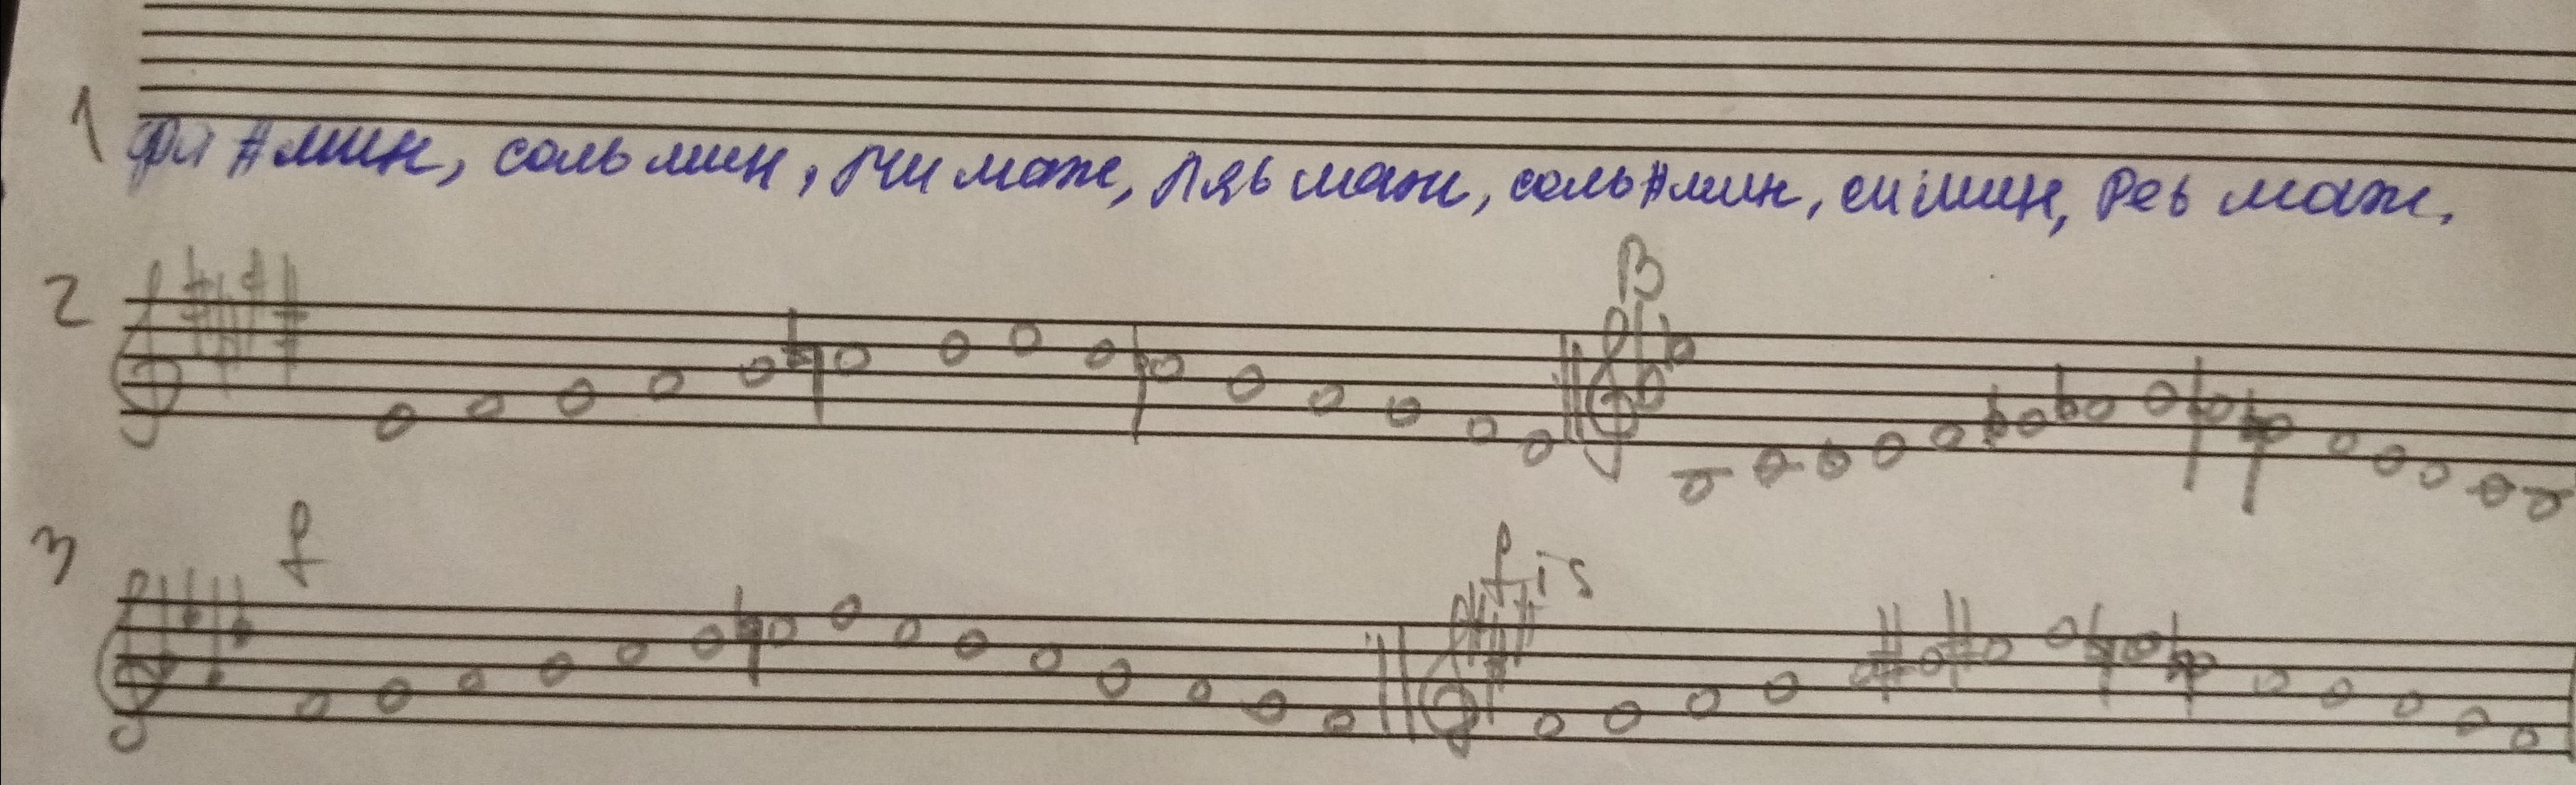 1 фа #мин, соль мин, ми маж, ляb маж, соль#мин, си мин, Реb маж,
2 B
3 f fis